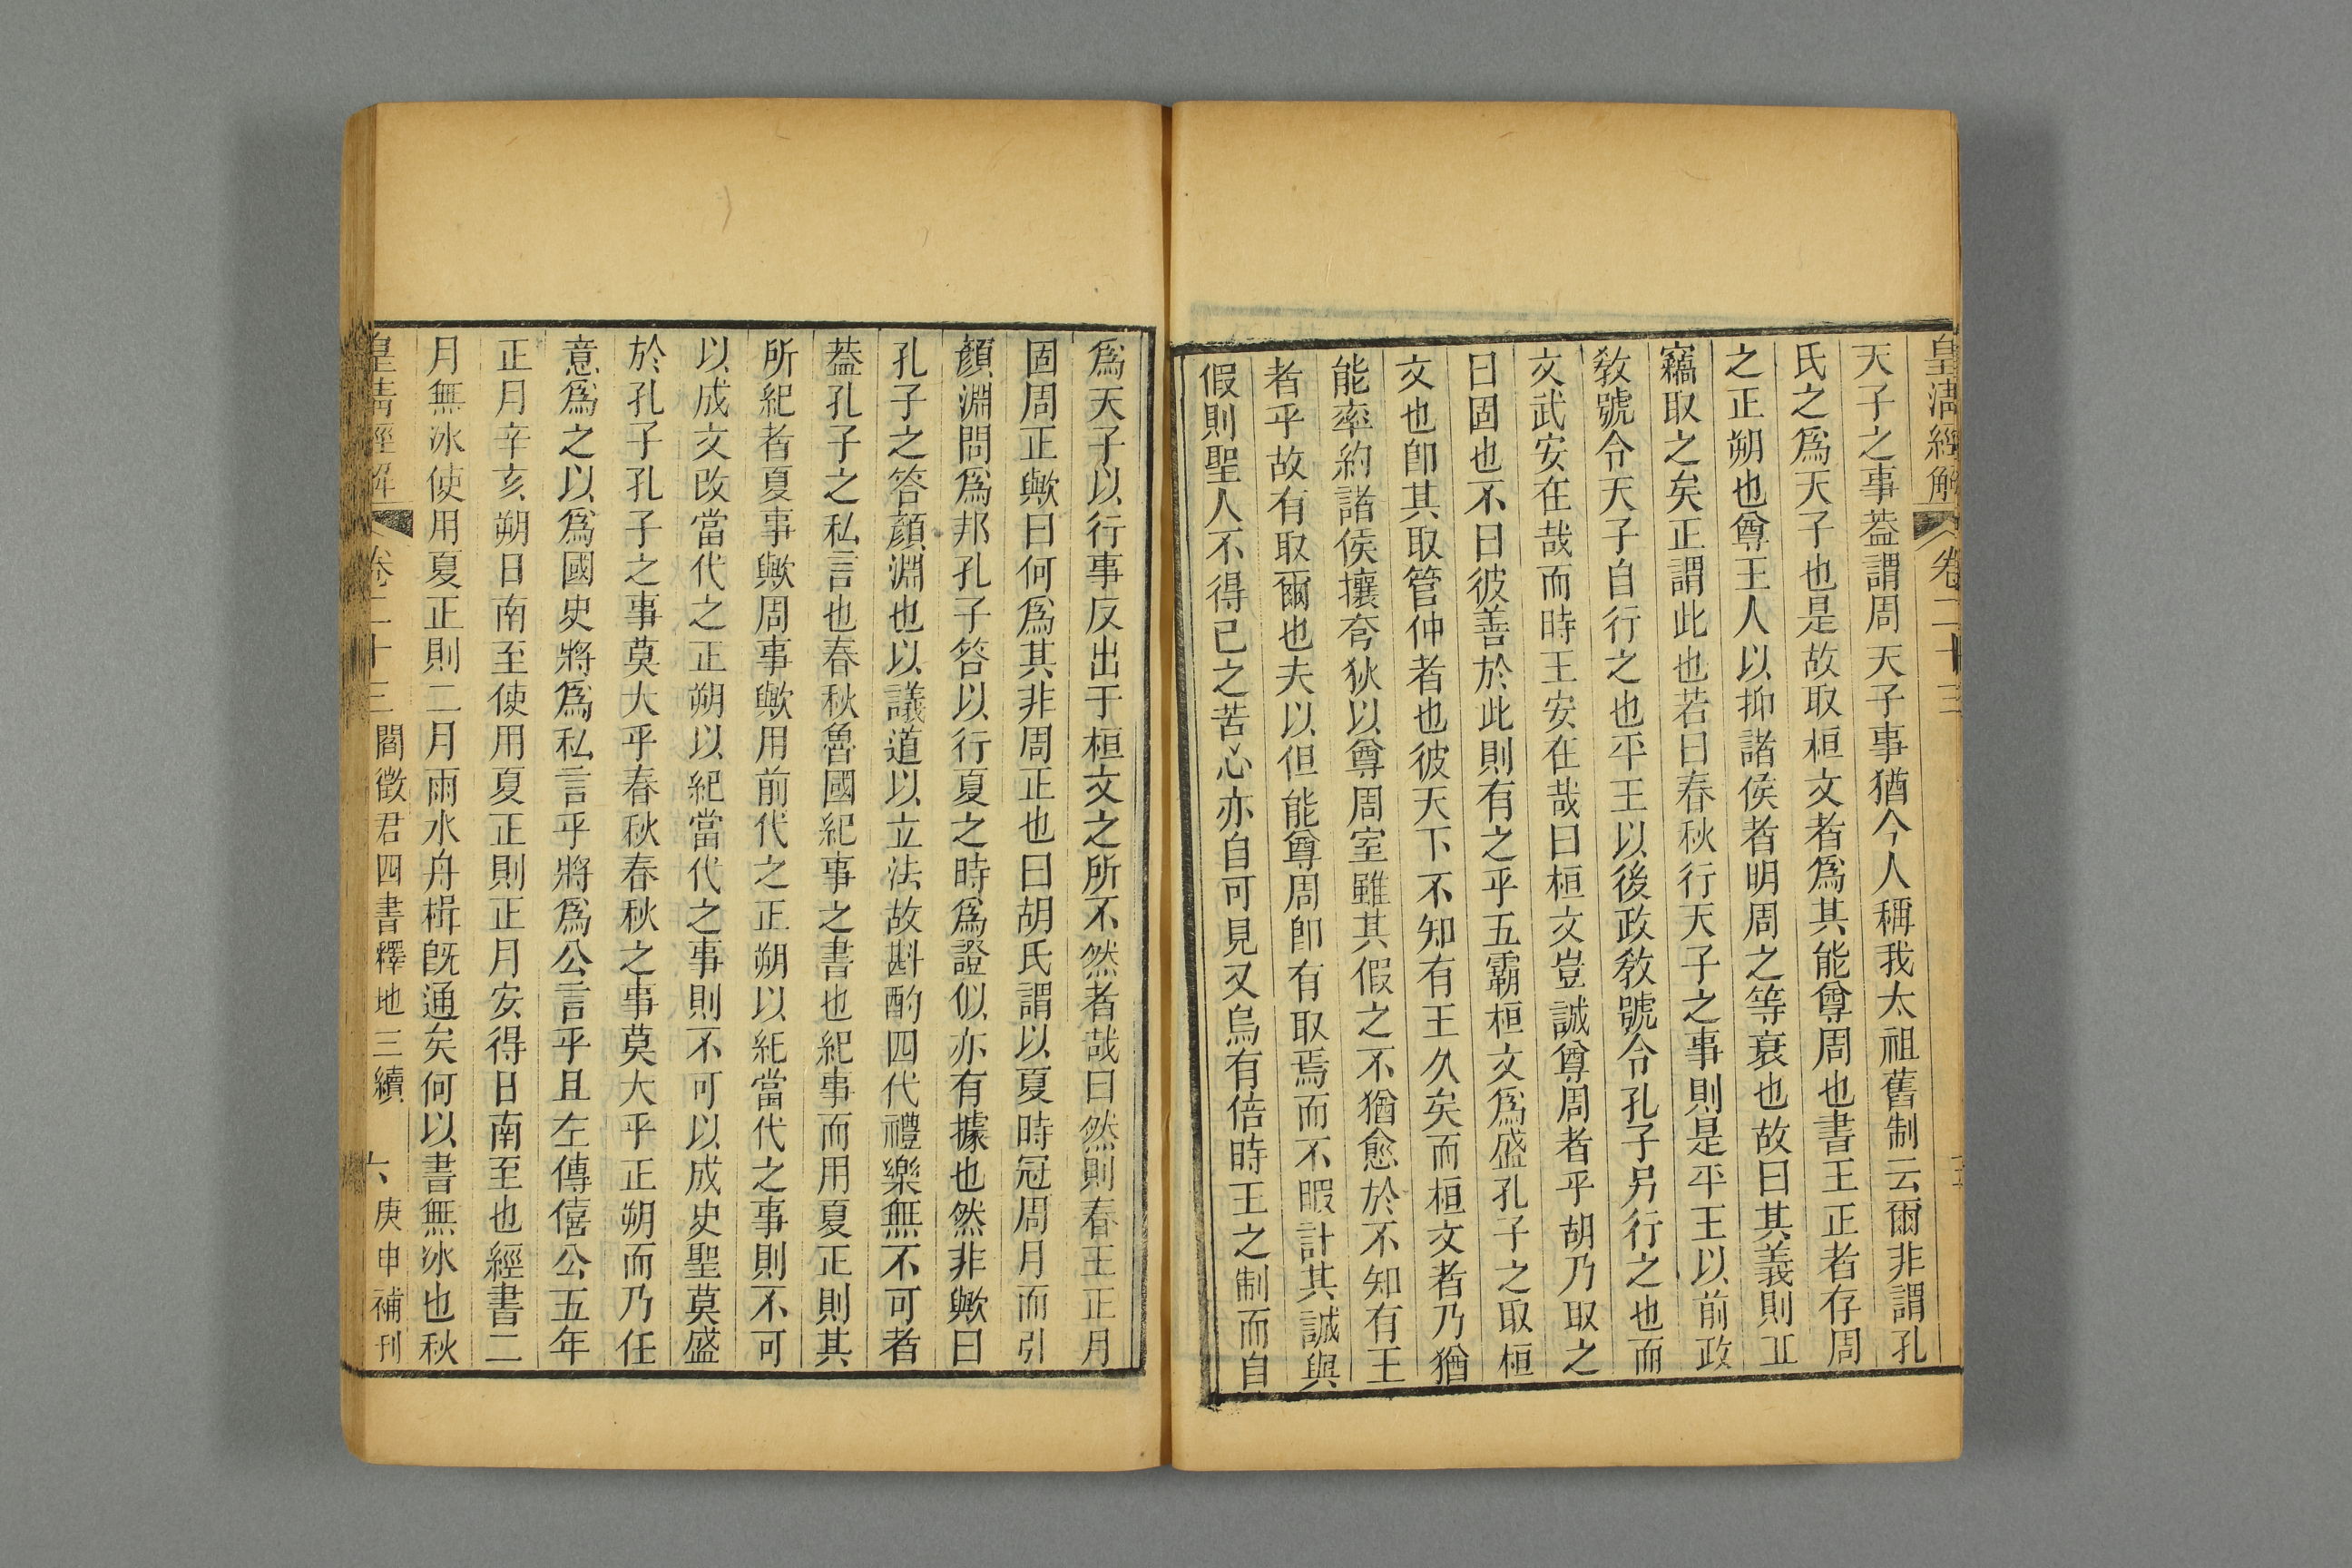 皇清經解 卷二十三
天子之事葢謂周天子事猶今人稱我太祖舊制云爾非謂孔
氏之爲天子也是故取桓文者爲其能尊周也書王正者存周
之正朔也尊王人以抑諸侯者明周之等衰也故曰其義則丘
竊取之矣正謂此也若曰春秋行天子之事則是平王以前政
敎號令天子自行之也平王以後政敎號令孔子另行之也而
文武安在哉而時王安在哉曰桓文豈誠尊周者乎胡乃取之
曰固也不曰彼善於此則有之乎五霸桓文爲盛孔子之取桓
文也卽其取管仲者也彼天下不知有王久矣而桓文者乃猶
能率約諸侯攘夸狄以尊周室雖其假之不猶愈於不知有王
者乎故有取爾也夫以但能尊周卽有取焉而不暇計其誠與
假則聖人不得已之苦心亦自可見又烏有倍時王之制而自
爲天子以行事反出于桓文之所不然者哉曰然則春王正月
固周正歟曰何爲其非周正也曰胡氏謂以夏時冠周月而引
顏淵問爲邦孔子答以行夏之時爲證似亦有據也然非歟曰
孔子之答顏淵也以議道以立法故斟酌四代禮樂無不可者
葢孔子之私言也春秋魯國紀事之書也紀事而用夏正則其
所紀者夏事歟周事歟用前代之正朔以紀當代之事則不可
以成文改當代之正朔以紀當代之事則不可以成史聖莫盛
於孔子孔子之事莫大乎春秋春秋之事莫大乎正朔而乃任
意爲之以爲國史將爲私言乎將爲公言乎且左傳僖公五年
正月辛亥朔日南至使用夏正則正月安得日南至也經書二
月無冰使用夏正則二月雨水舟楫旣通矣何以書無冰也秋
皇清經解 卷二十三 閻徵君四書釋地三續 六 庚申補刊